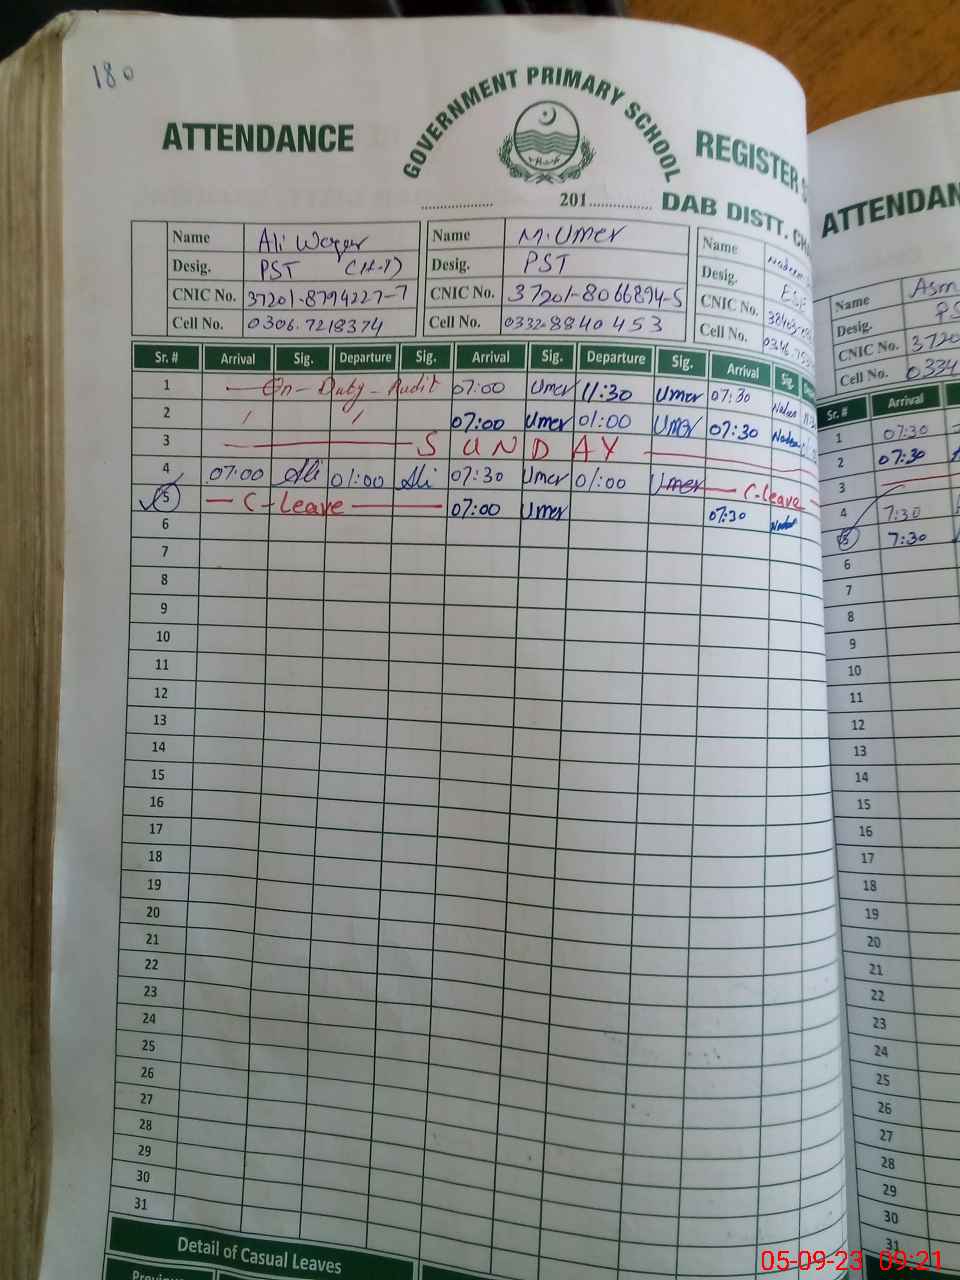 180
GOVERNMENT PRIMARY SCHOOL
ATTENDANCE REGISTER
201
DAB DISTT.
Name Ali Waqar Name M. Umer Name
Desig. PST (H.T) Desig. PST Desig.
CNIC No. 37201-8794227-7 CNIC No. 37201-8066894-5 CNIC No.
Cell No. 0306.7218374 Cell No. 0332-8840453 Cell No.
Sr. # Arrival Sig. Departure Sig. Arrival Sig. Departure Sig. Arrival Sig.
1 On-Duty-Audit 07:00 Umer 11:30 Umer 07:30
2 07:00 Umer 01:00 Umer 07:30
3 SUNDAY
4 07:00 Ali 01:00 Ali 07:30 Umer 01:00 Umer C-leave
5 C-Leave 07:00 Umer 07:30
6
7
8
9
10
11
12
13
14
15
16
17
18
19
20
21
22
23
24
25
26
27
28
29
30
31
Detail of Casual Leaves
ATTENDAN
Name
Desig.
CNIC No. 3720
Cell No. 0334
Sr. # Arrival
1 07:30
2 07:30
3
4 7:30
5 7:30
6
7
8
9
10
11
12
13
14
15
16
17
18
19
20
21
22
23
24
25
26
27
28
29
30
31
05-09-23 09:21